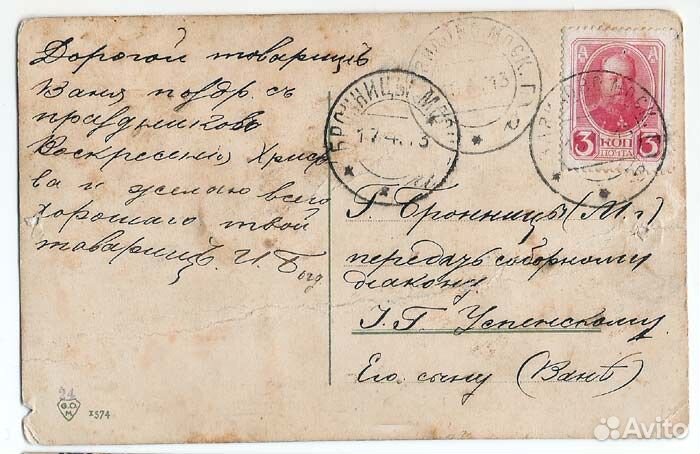 Дорогой товарищъ
Ваня поздр. съ
праздникомъ
Воскресения Хрис
ва и желаю всего
хорошаго твой
товарищъ. И.
БРОННИЦЫ МОСК.
17.4.13
2
3 КОП 3
ПОЧТА
Г. Бронницъ (М. г)
передать соборному
діакону.
І. Г. Успенскому.
Его сыну (Ванѣ)
24
G.O.
M.
1574
Avito